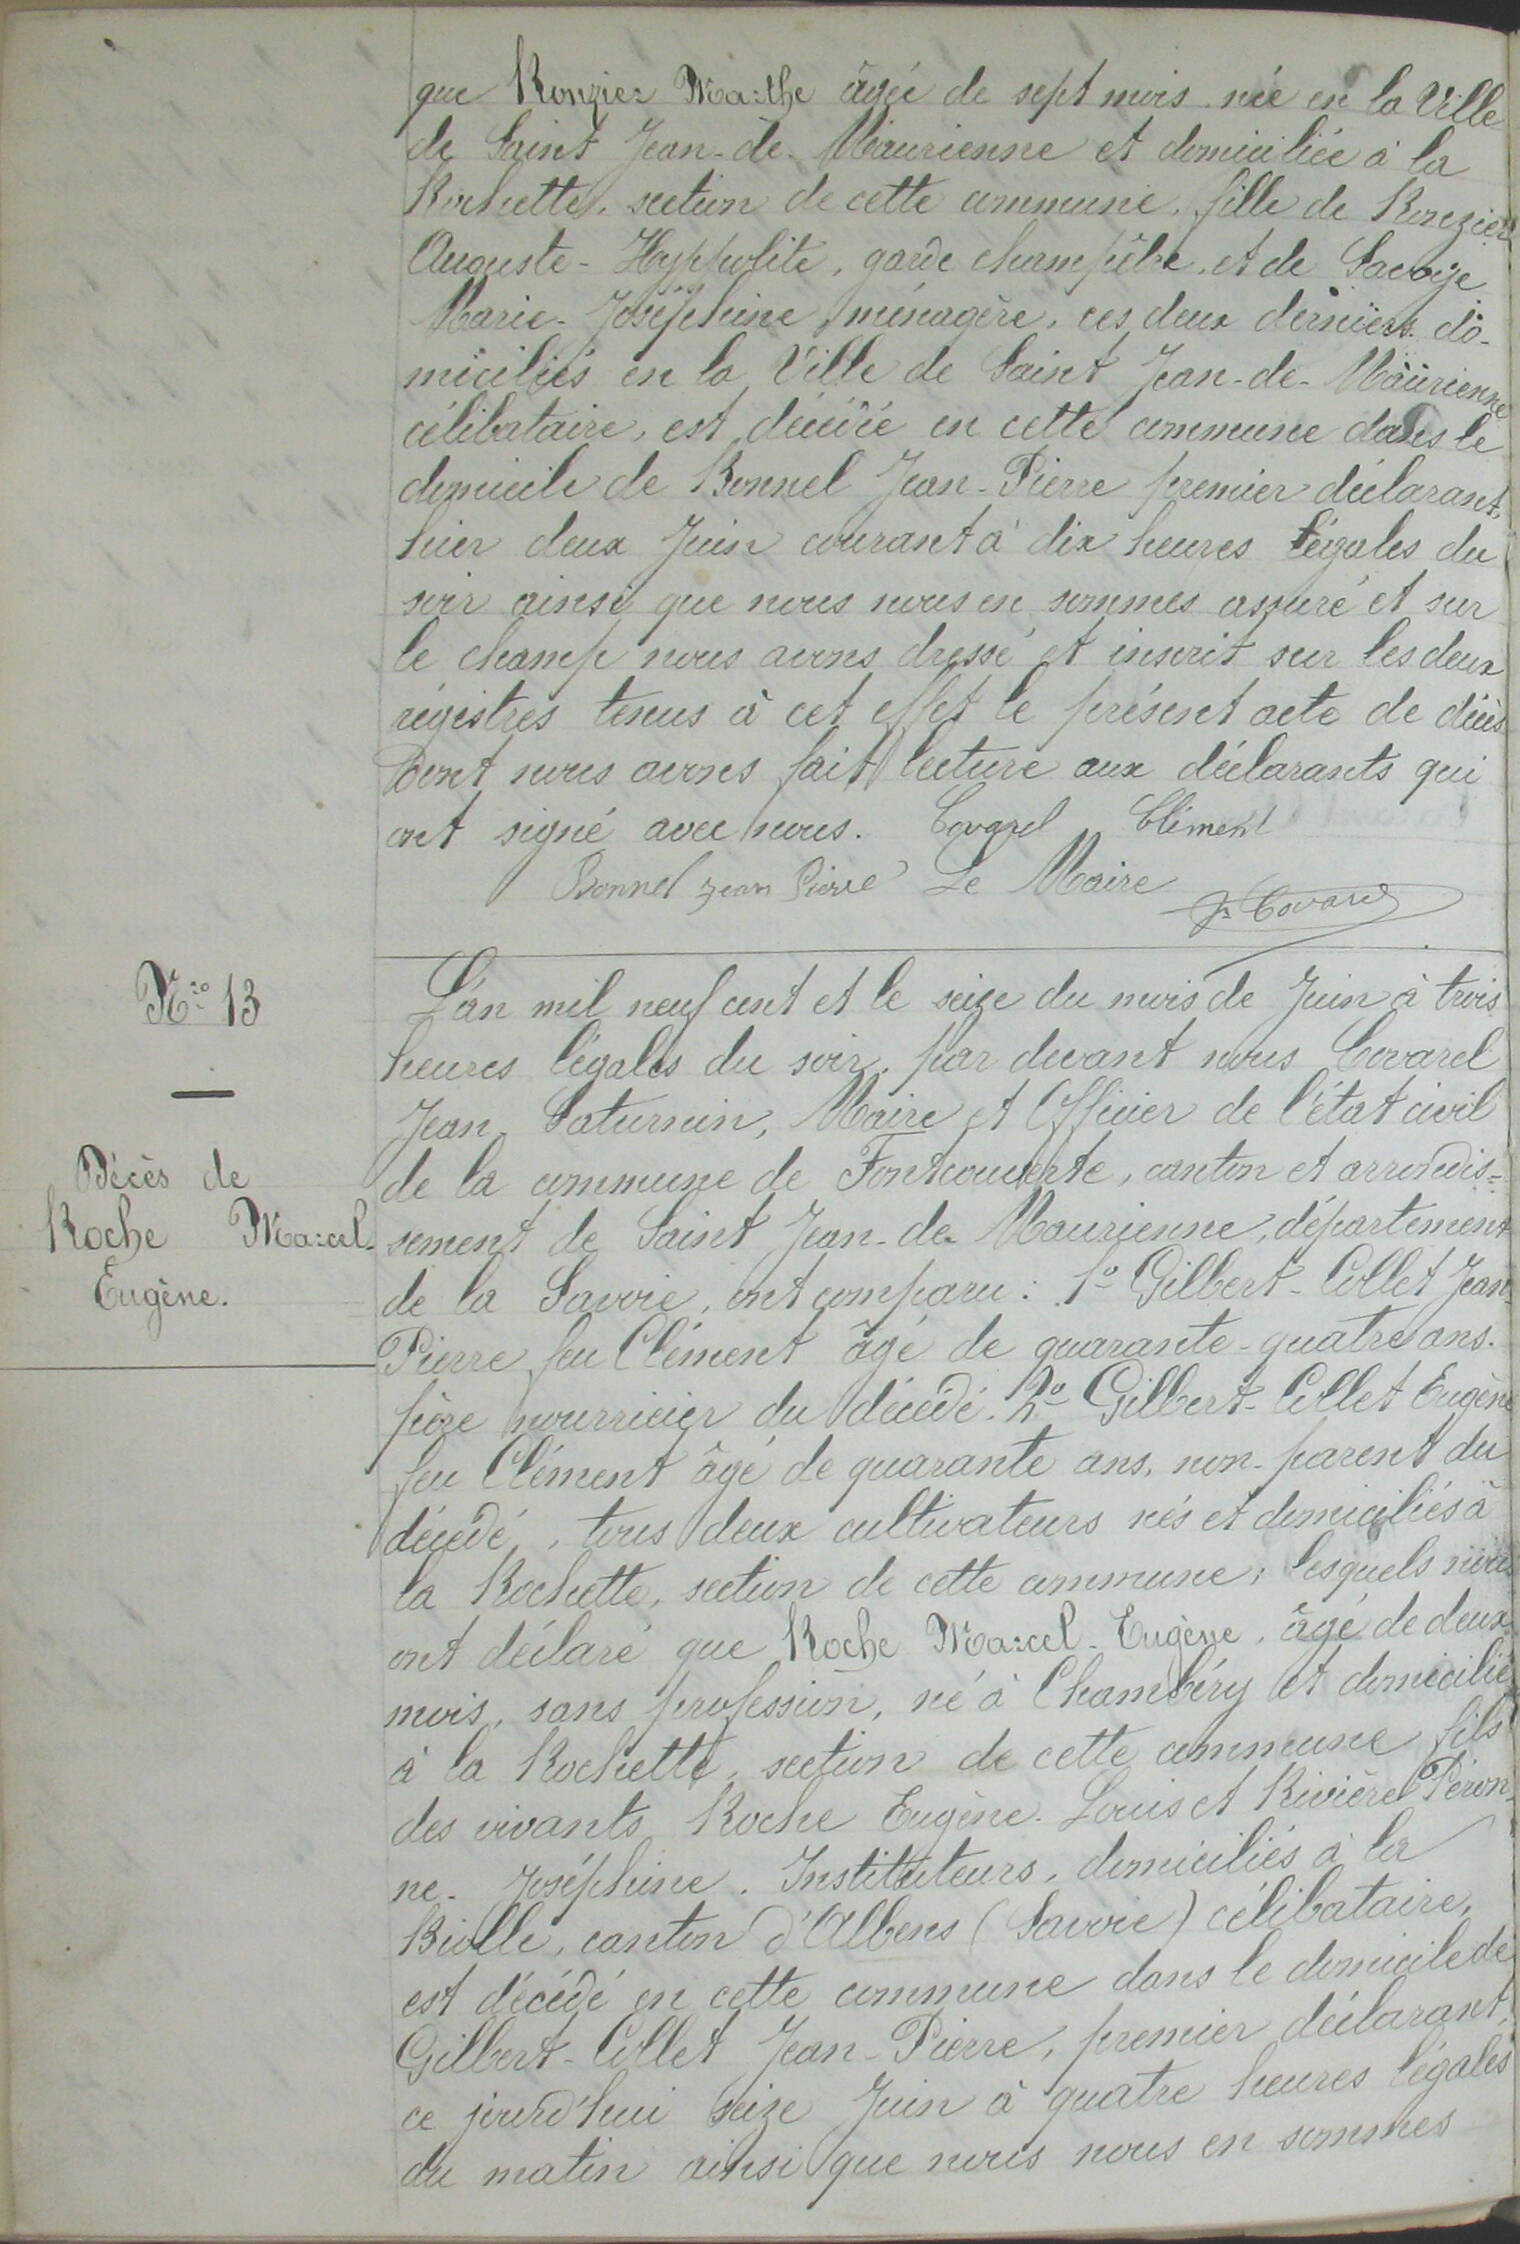 que Ronzier Marthe âgée de sept mois née en la Ville
de Saint Jean-de-Maurienne et domiciliée à la
Rochette, section de cette commune, fille de Ronzier
Auguste-Hyppolite, garde champêtre, et de Savoye
Marie-Joséphine, ménagère, ces deux derniers do-
miciliés en la Ville de Saint Jean-de-Maurienne
célibataire, est décédée en cette commune dans le
domicile de Bonnel Jean-Pierre premier déclarant,
hier deux Juin courant à dix heures légales du
soir ainsi que nous nous en sommes assuré et sur
le champ nous avons dressé et inscrit sur les deux
régistres tenus à cet effet le présent acte de décès
dont nous avons fait lecture aux déclarants qui
ont signé avec nous. Covarel Clément
Bonnel Jean Pierre Le Maire
J. Covarel
No 13
Décès de
Roche Marcel-
Eugène.
L'an mil neuf cent et le seize du mois de Juin à trois
heures légales du soir, par devant nous Covarel
Jean-Saturnin, Maire et Officier de l'état civil
de la commune de Fontcouverte, canton et arrondis-
sement de Saint Jean-de-Maurienne, département
de la Savoie, ont comparu : 1o Gilbert-Collet Jean-
Pierre feu Clément âgé de quarante-quatre ans.
père nourricier du décédé. 2o Gilbert-Collet Eugène
feu Clément âgé de quarante ans, non-parent du
décédé, tous deux cultivateurs nés et domiciliés à
la Rochette, section de cette commune; lesquels nous
ont déclaré que Roche Marcel-Eugène, âgé de deux
mois, sans profession, né à Chambéry et domicilié
à la Rochette, section de cette commune fils
des vivants Roche Eugène-Louis et Rivière Péron-
ne-Joséphine. Instituteurs, domiciliés à la
Biolle, canton d'Albens (Savoie) célibataire,
est décédé en cette commune dans le domicile de
Gilbert-Collet Jean-Pierre, premier déclarant,
ce jourd'hui seize Juin à quatre heures légales
du matin ainsi que nous nous en sommes